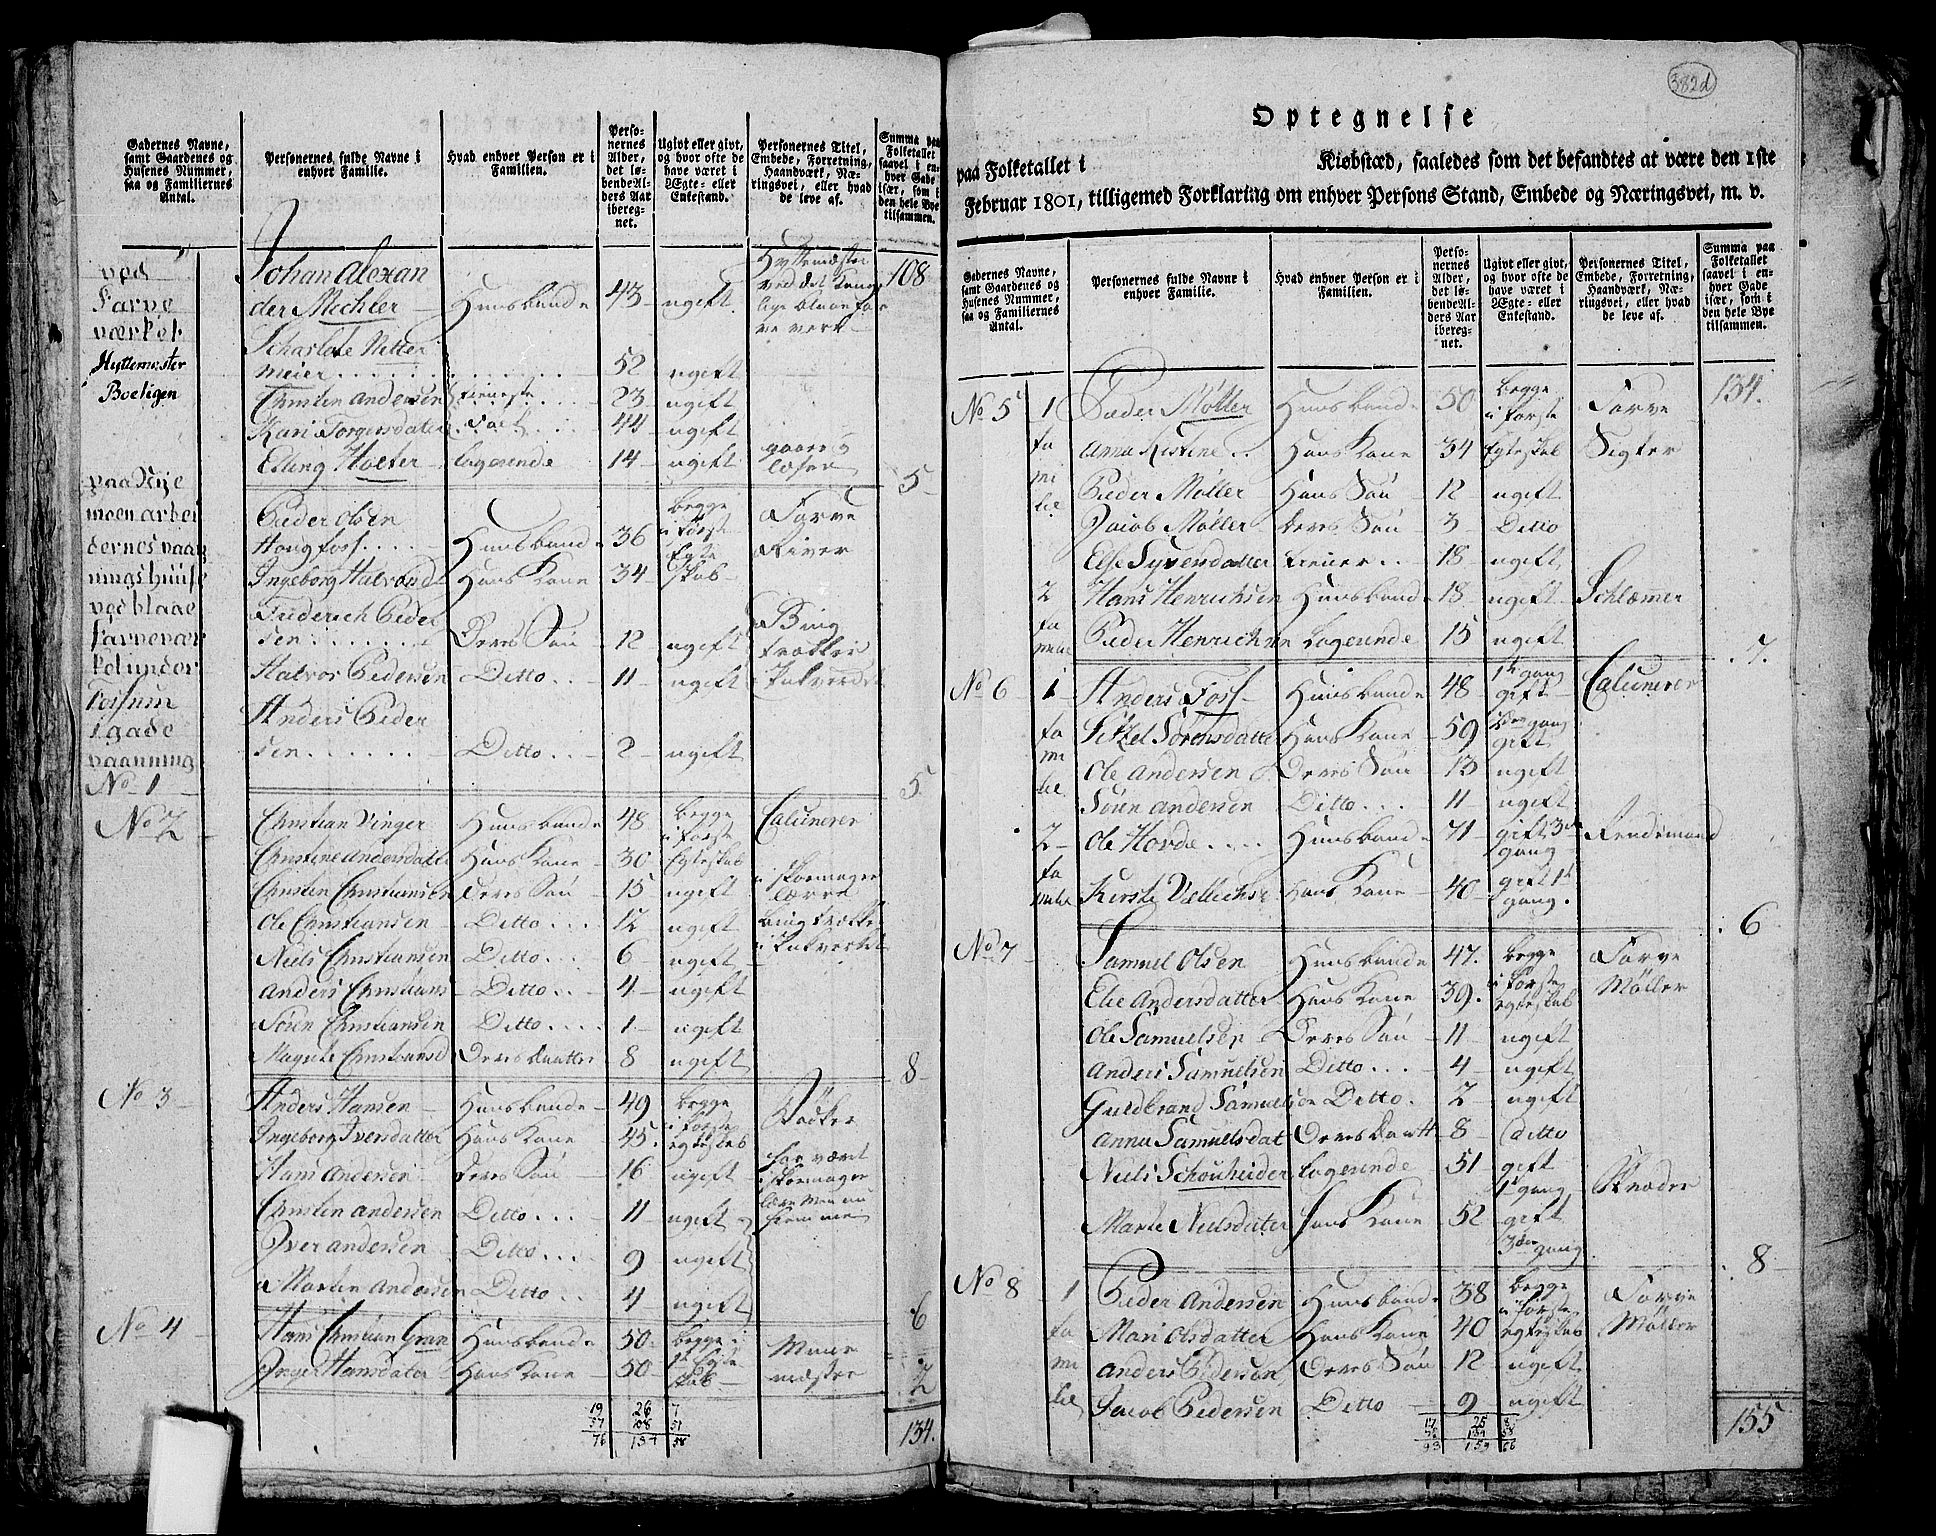 Gadernes Navne, samt Gaardenes og Husenes Nummer, saa og Familiernes Antal.
Personernes fulde Navne i enhver Familie.
Hvad enhver Person er i Familien.
Personernes Alder, det løbende Alders Aar iberegnet.
Ugivt eller givt, og hvor ofte de have været i Ægte- eller Enkestand.
Personernes Titel, Embede, Forretning, Haandværk, Næringsvei, eller hvad de leve af.
Summa paa Folketallet saavel i enhver Gade især, som i den hele Bye tilsammen.
108
ved Farve værket Hyttemester Boeligen
Johan Alexander Mechler Huusbonde 43 ugift Hyttemæster ved det Kongelige blaue Farveverk
Scharlote Nettermeier 52 ugift
Christen Andersen tieneste 23 ugift
Kari Torgersdater 44 ugift
Erling Holter logerende 14 ugift
5
paa Nye moen arbeidernes vaaningshuuse ved blaae farveværket under Fossum
vaanning
No 1
Peder Olsen Hougfoss Huusbonde 36 begge i første Egteskab Farve River
Ingeborg Halvorsd Hans Kone 34
Friderich Pedersen Deres Søn 12 ugift
Halvor Pedersen Ditto 11 ugift
Anders Pedersen Ditto 2 ugift
5
No 2
Christian Vinger Huusbonde 48 begge i første Egteskab Calcinerer
Christine Andersdatter Hans Kone 30
Christen Christiansen Deres Søn 15 ugift i skomager lærre
Ole Christiansen Ditto 12 ugift
Niels Christiansen Ditto 6 ugift
Anders Christians Ditto 4 ugift
Søren Christiansen Ditto 1 ugift
Magrete Christiansd Deres Daatter 8 ugift
8
No 3
Anders Hansen Huusbonde 49 begge i første egteskab
Ingeborg Iversdatter Hans Kone 45
Hans Andersen Deres Søn 16 ugift har været i skomager lære men nu hiemme
Christen Andersen Ditto 11 ugift
Iver Andersen Ditto 9 ugift
Martin Andersen Ditto 4 ugift
6
No 4
Hans Christian Gran Huusbonde 50 begge i 1te Egteskab Muur mæster
Inger Hansdater Hans Kone 50
2
19 26 7
57 108 51
76 134 58
134.
382d
Optegnelse
paa Folketallet i Kiøbstæd, saaledes som det befandtes at være den 1ste
Februar 1801, tilligemed Forklaring om enhver Persons Stand, Embede og Næringsvei, m. v.
Gadernes Navne, samt Gaardenes og Husenes Nummer, saa og Familiernes Antal.
Personernes fulde Navne i enhver Familie.
Hvad enhver Person er i Familien.
Personernes Alder, det løbende Alders Aar iberegnet.
Ugivt eller givt, og hvor ofte de have været i Ægte- eller Enkestand.
Personernes Titel, Embede, Forretning, Haandværk, Næringsvei, eller hvad de leve af.
Summa paa Folketallet saavel i enhver Gade især, som i den hele Bye tilsammen.
134.
No 5 1 familie
Peder Møller Huusbonde 50 begge i første Egteskab Farve Sigter
Anna Kistine Hans Kone 34
Peder Møller Hans Søn 12 ugift
Jacob Møller Deres Søn 3 Ditto
Else Syversdatter tiener 18 ugift
2 familie
Hans Henrichsen Huusbonde 18 ugift Schlemer
Peder Henrichsen Logerende 15 ugift
7.
No 6 1 familie
Anders Foss Huusbonde 48 1te gang gift Calcinerer
Sitzel Sørensdatter Hans Kone 59 gang gift
Ole Andersen Deres Søn 13 ugift
Søren Andersen Ditto 11 ugift
2 familie
Ole Hovde Huusbonde 71 gift 3die gang
Kirsti Hans Kone 40 gift 1te gang.
6
No 7
Samuel Olsen Huusbonde 47. begge i første egteskab Farve Møller
Elie Andersdatter Hans Kone 39.
Ole Samuelsen Deres Søn 11 ugift
Anders Samuelsen Ditto 4 ugift
Guldbrand Samuelsen Ditto. 2 ugift
Anna Samuelsdat Deres Daatt 8 Ditto
Niels Schonheider Logerende 51 gift 1te gang
Marte Nielsdater Hans Kone 52 gift 3die gang
8
No 8 1 familie
Peder Andersen Huusbonde 38 begge i første egteskab Farve Møller
Mari Olsdatter Hans Kone 40
Anders Pedersen Deres Søn 12 ugift
Jacob Pedersen Ditto 9 ugift
17 25 8
76 134 58
93 159 66
155